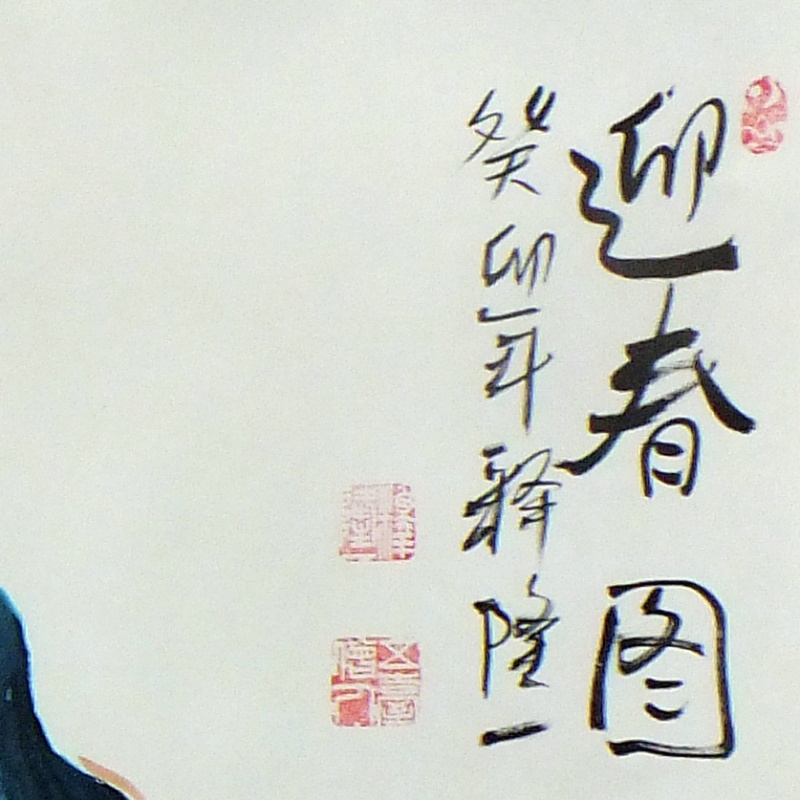 迎春图
癸卯年释隆一